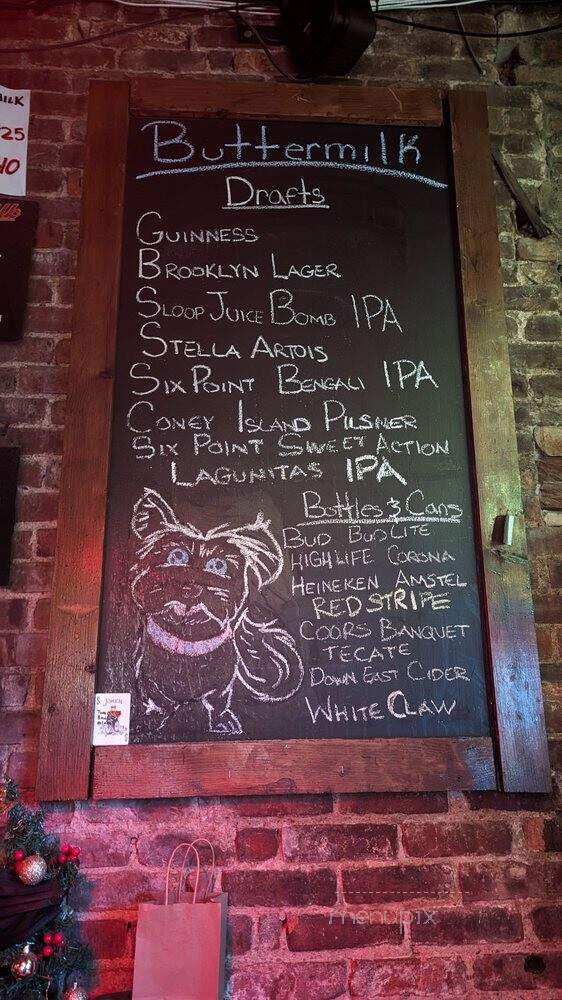 MILK
25
10
Buttermilk
Drafts
GUINNESS
BROOKLYN LAGER
SLOOP JUICE BOMB IPA
STELLA ARTOIS
SIX POINT BENGALI IPA
CONEY ISLAND PILSNER
SIX POINT SWEET ACTION
LAGUNITAS IPA
Bottles & Cans
BUD BUD LITE
HIGH LIFE CORONA
HEINEKEN AMSTEL
RED STRIPE
COORS BANQUET
TECATE
DOWN EAST CIDER
WHITE CLAW
JOKER
menupix